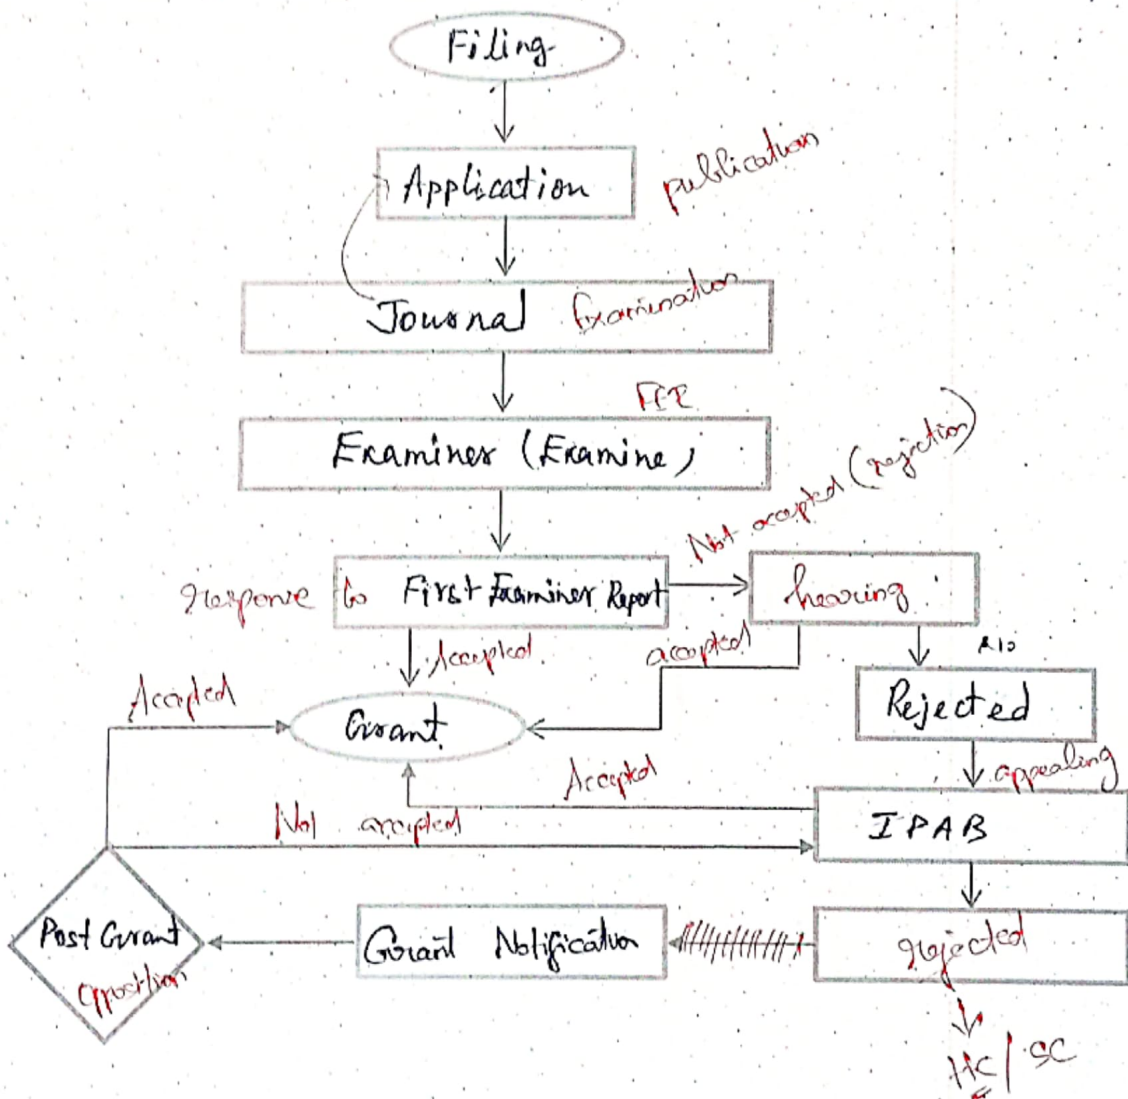 Filing
Application
publication
Journal Examination
FER
Examiner (Examine)
Not accepted (rejection)
response to First Examiner Report
hearing
Accepted
accepted
Accepted
Grant
Rejected
appealing
Accepted
IPAB
Not accepted
Post Grant
opposition
Grant Notification
rejected
HC / SC